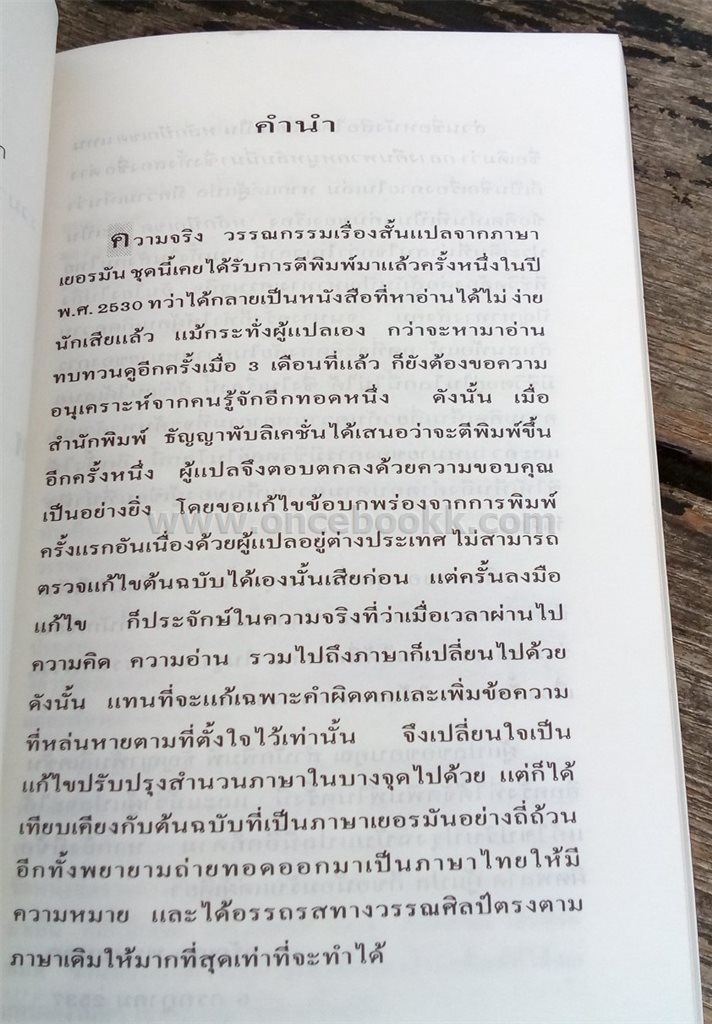 คำนำ
ความจริง วรรณกรรมเรื่องสั้นแปลจากภาษา
เยอรมัน ชุดนี้เคยได้รับการตีพิมพ์มาแล้วครั้งหนึ่งในปี
พ.ศ. 2530 ทว่าได้กลายเป็นหนังสือที่หาอ่านได้ไม่ ง่าย
นักเสียแล้ว แม้กระทั่งผู้แปลเอง กว่าจะหามาอ่าน
ทบทวนดูอีกครั้งเมื่อ 3 เดือนที่แล้ว ก็ยังต้องขอความ
อนุเคราะห์จากคนรู้จักอีกทอดหนึ่ง ดังนั้น เมื่อ
สำนักพิมพ์ ธัญญาพับลิเคชั่นได้เสนอว่าจะตีพิมพ์ขึ้น
อีกครั้งหนึ่ง ผู้แปลจึงตอบตกลงด้วยความขอบคุณ
เป็นอย่างยิ่ง โดยขอแก้ไขข้อบกพร่องจากการพิมพ์
www.oncebookk.com
ครั้งแรกอันเนื่องด้วยผู้แปลอยู่ต่างประเทศ ไม่สามารถ
ตรวจแก้ไขต้นฉบับได้เองนั้นเสียก่อน แต่ครั้นลงมือ
แก้ไข ก็ประจักษ์ในความจริงที่ว่าเมื่อเวลาผ่านไป
ความคิด ความอ่าน รวมไปถึงภาษาก็เปลี่ยนไปด้วย
ดังนั้น แทนที่จะแก้เฉพาะคำผิดตกและเพิ่มข้อความ
ที่หล่นหายตามที่ตั้งใจไว้เท่านั้น จึงเปลี่ยนใจเป็น
แก้ไขปรับปรุงสำนวนภาษาในบางจุดไปด้วย แต่ก็ได้
เทียบเคียงกับต้นฉบับที่เป็นภาษาเยอรมันอย่างถี่ถ้วน
อีกทั้งพยายามถ่ายทอดออกมาเป็นภาษาไทยให้มี
ความหมาย และได้อรรถรสทางวรรณศิลป์ตรงตาม
ภาษาเดิมให้มากที่สุดเท่าที่จะทำได้